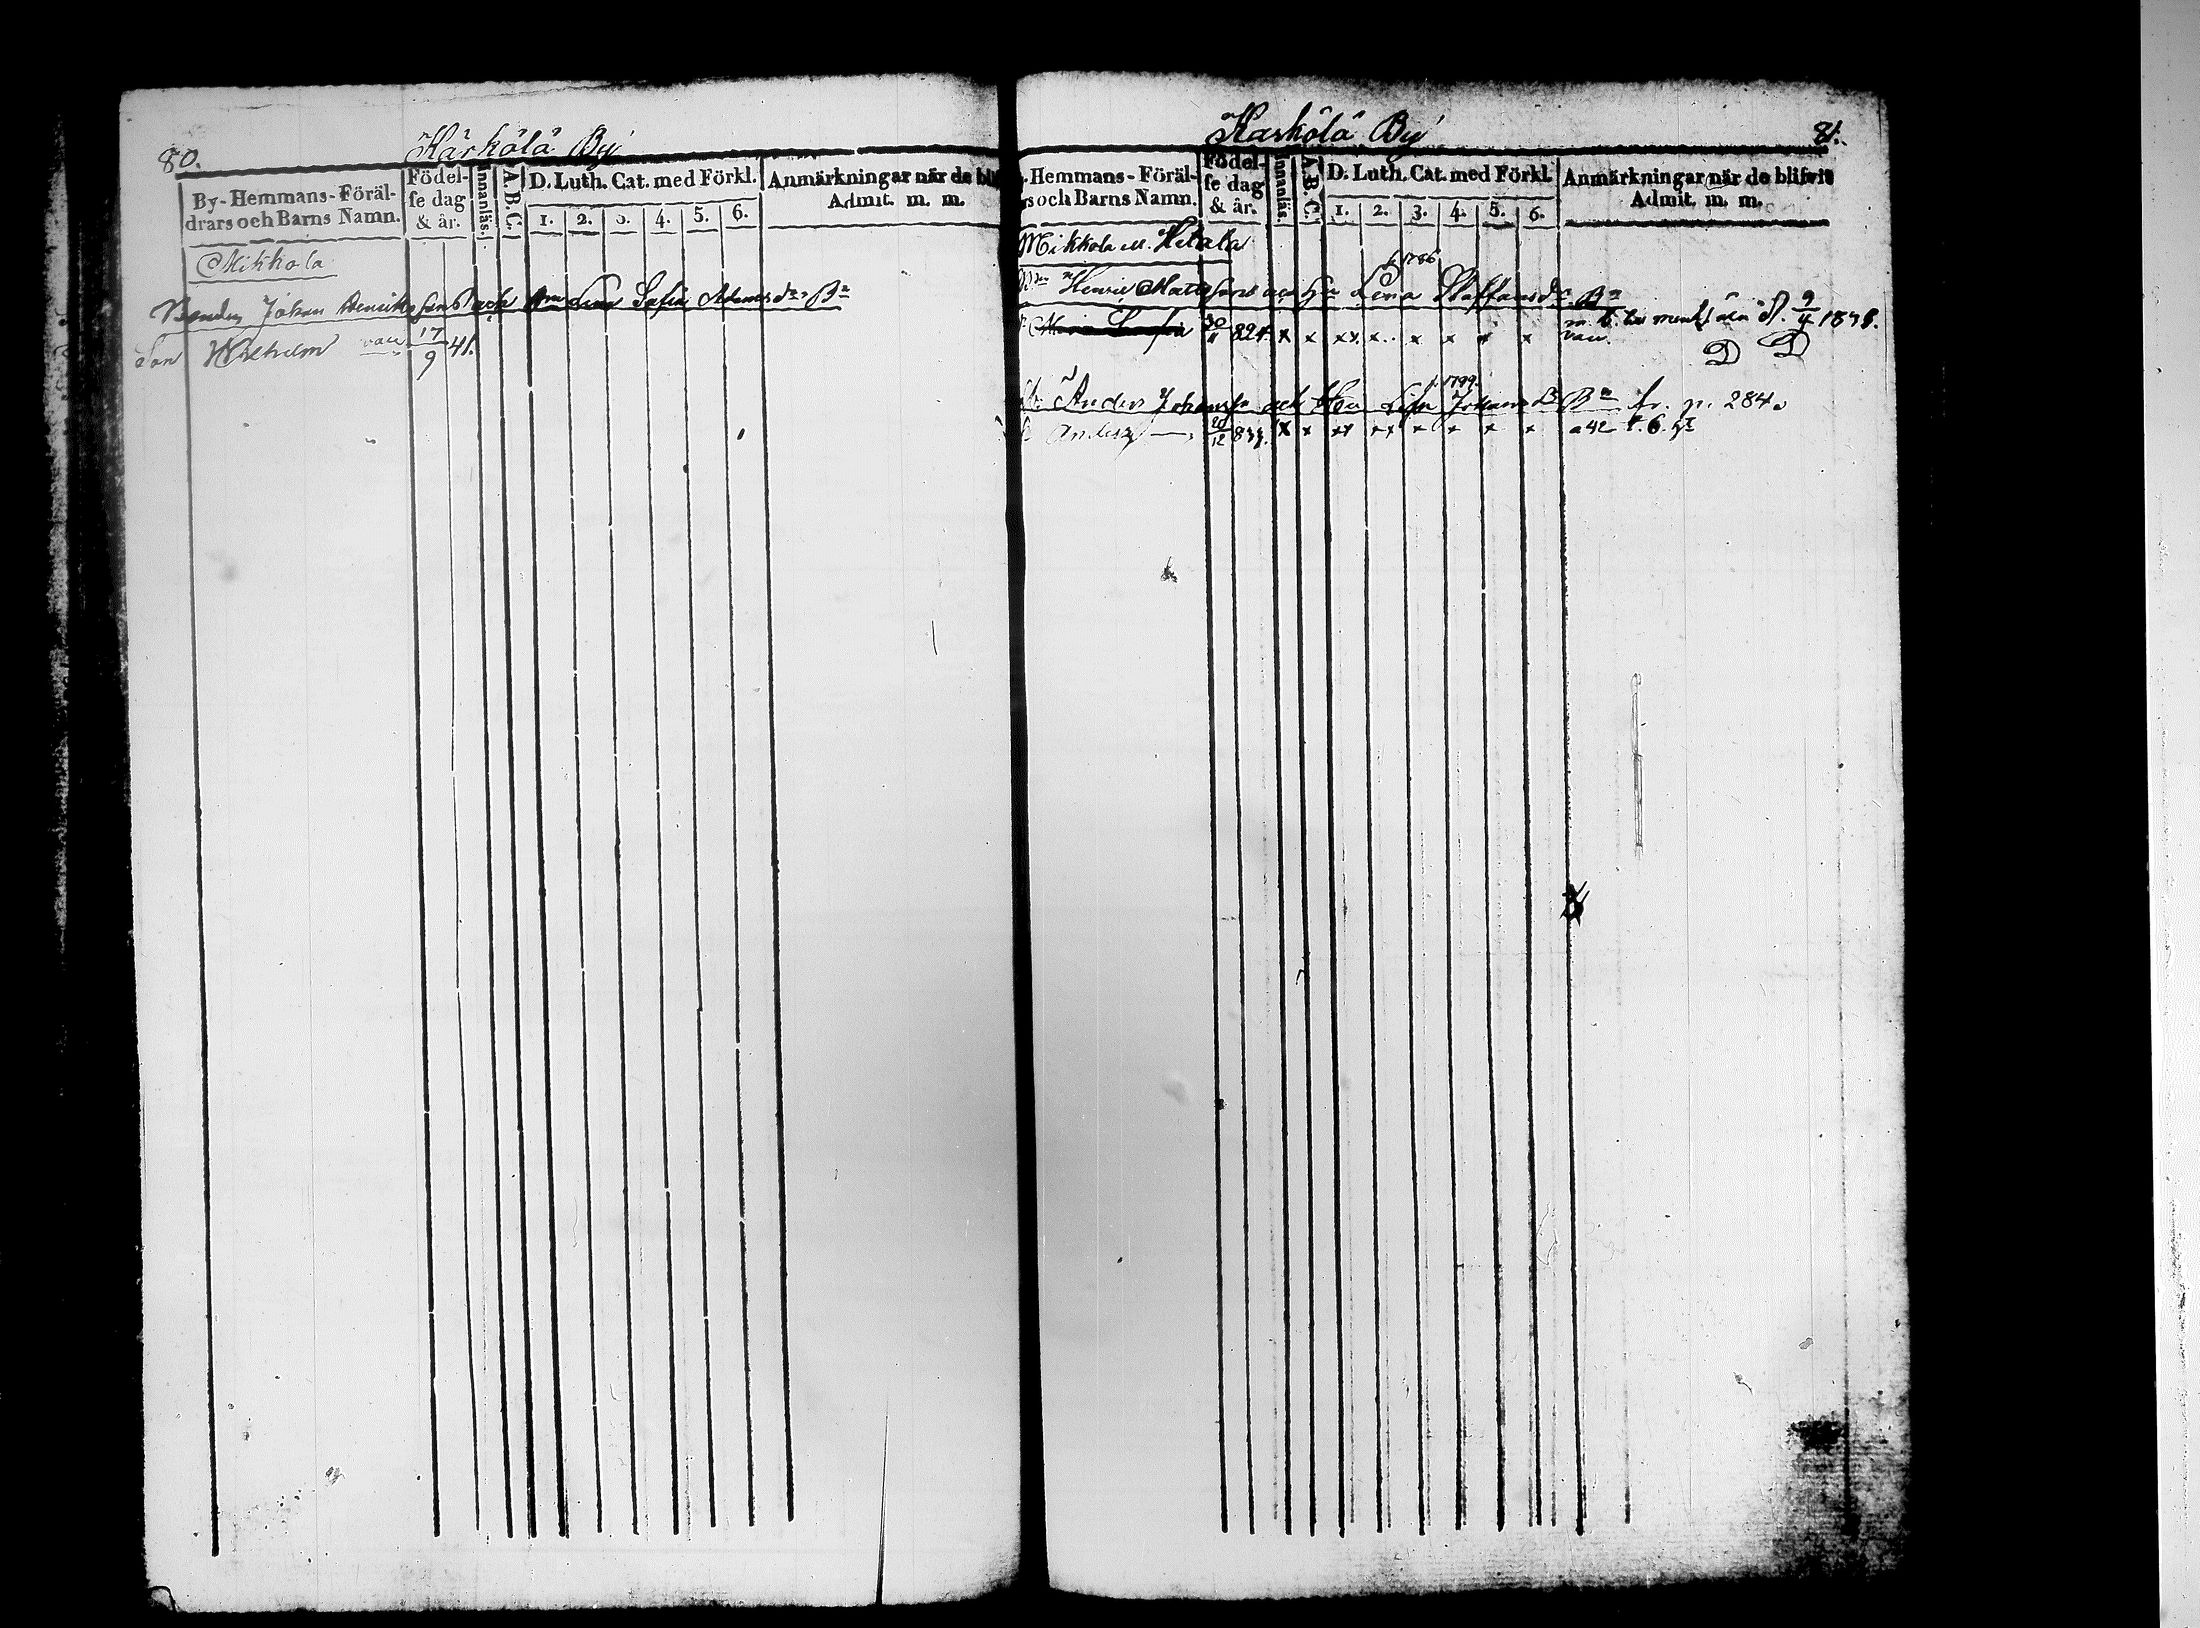 80.
Kärkölä By
By-Hemmans-Föräl-
drars och Barns Namn.
Födel-
se dag
& år.
Innanläs.
A.B.C.
D. Luth. Cat. med Förkl.
1. 2. 3. 4. 5. 6.
Anmärkningar när de bli
Admit. m. m.
Mikkola
Bonden Johan Henrikssons och Lena Sofia Adams dr Bn
Son Wilhelm vacc 17/9 41.
Kärkölä By
81.
Hemmans-Föräl-
s och Barns Namn.
Födel-
se dag
& år.
Innanläs.
A.B.C.
D. Luth. Cat. med Förkl.
1. 2. 3. 4. 5. 6.
Anmärkningar när de blifvit
Admit. m. m.
Mikkola ell. Hetala
f. 1786
Henric Matssons och Hu Lena Staffans dr Bn
Maria Sofia 30/11 824. x x xx x x x x x vacc. 9/4 1838.
D D
f. 1799.
Anders Johansson och Hu Lisa Johans Dr Bn fr. p. 284.
Anders 20/12 x x xx xx x x x x a 42 t. 6.